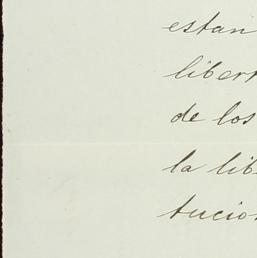 estan
libert
de los
la lib
tucio